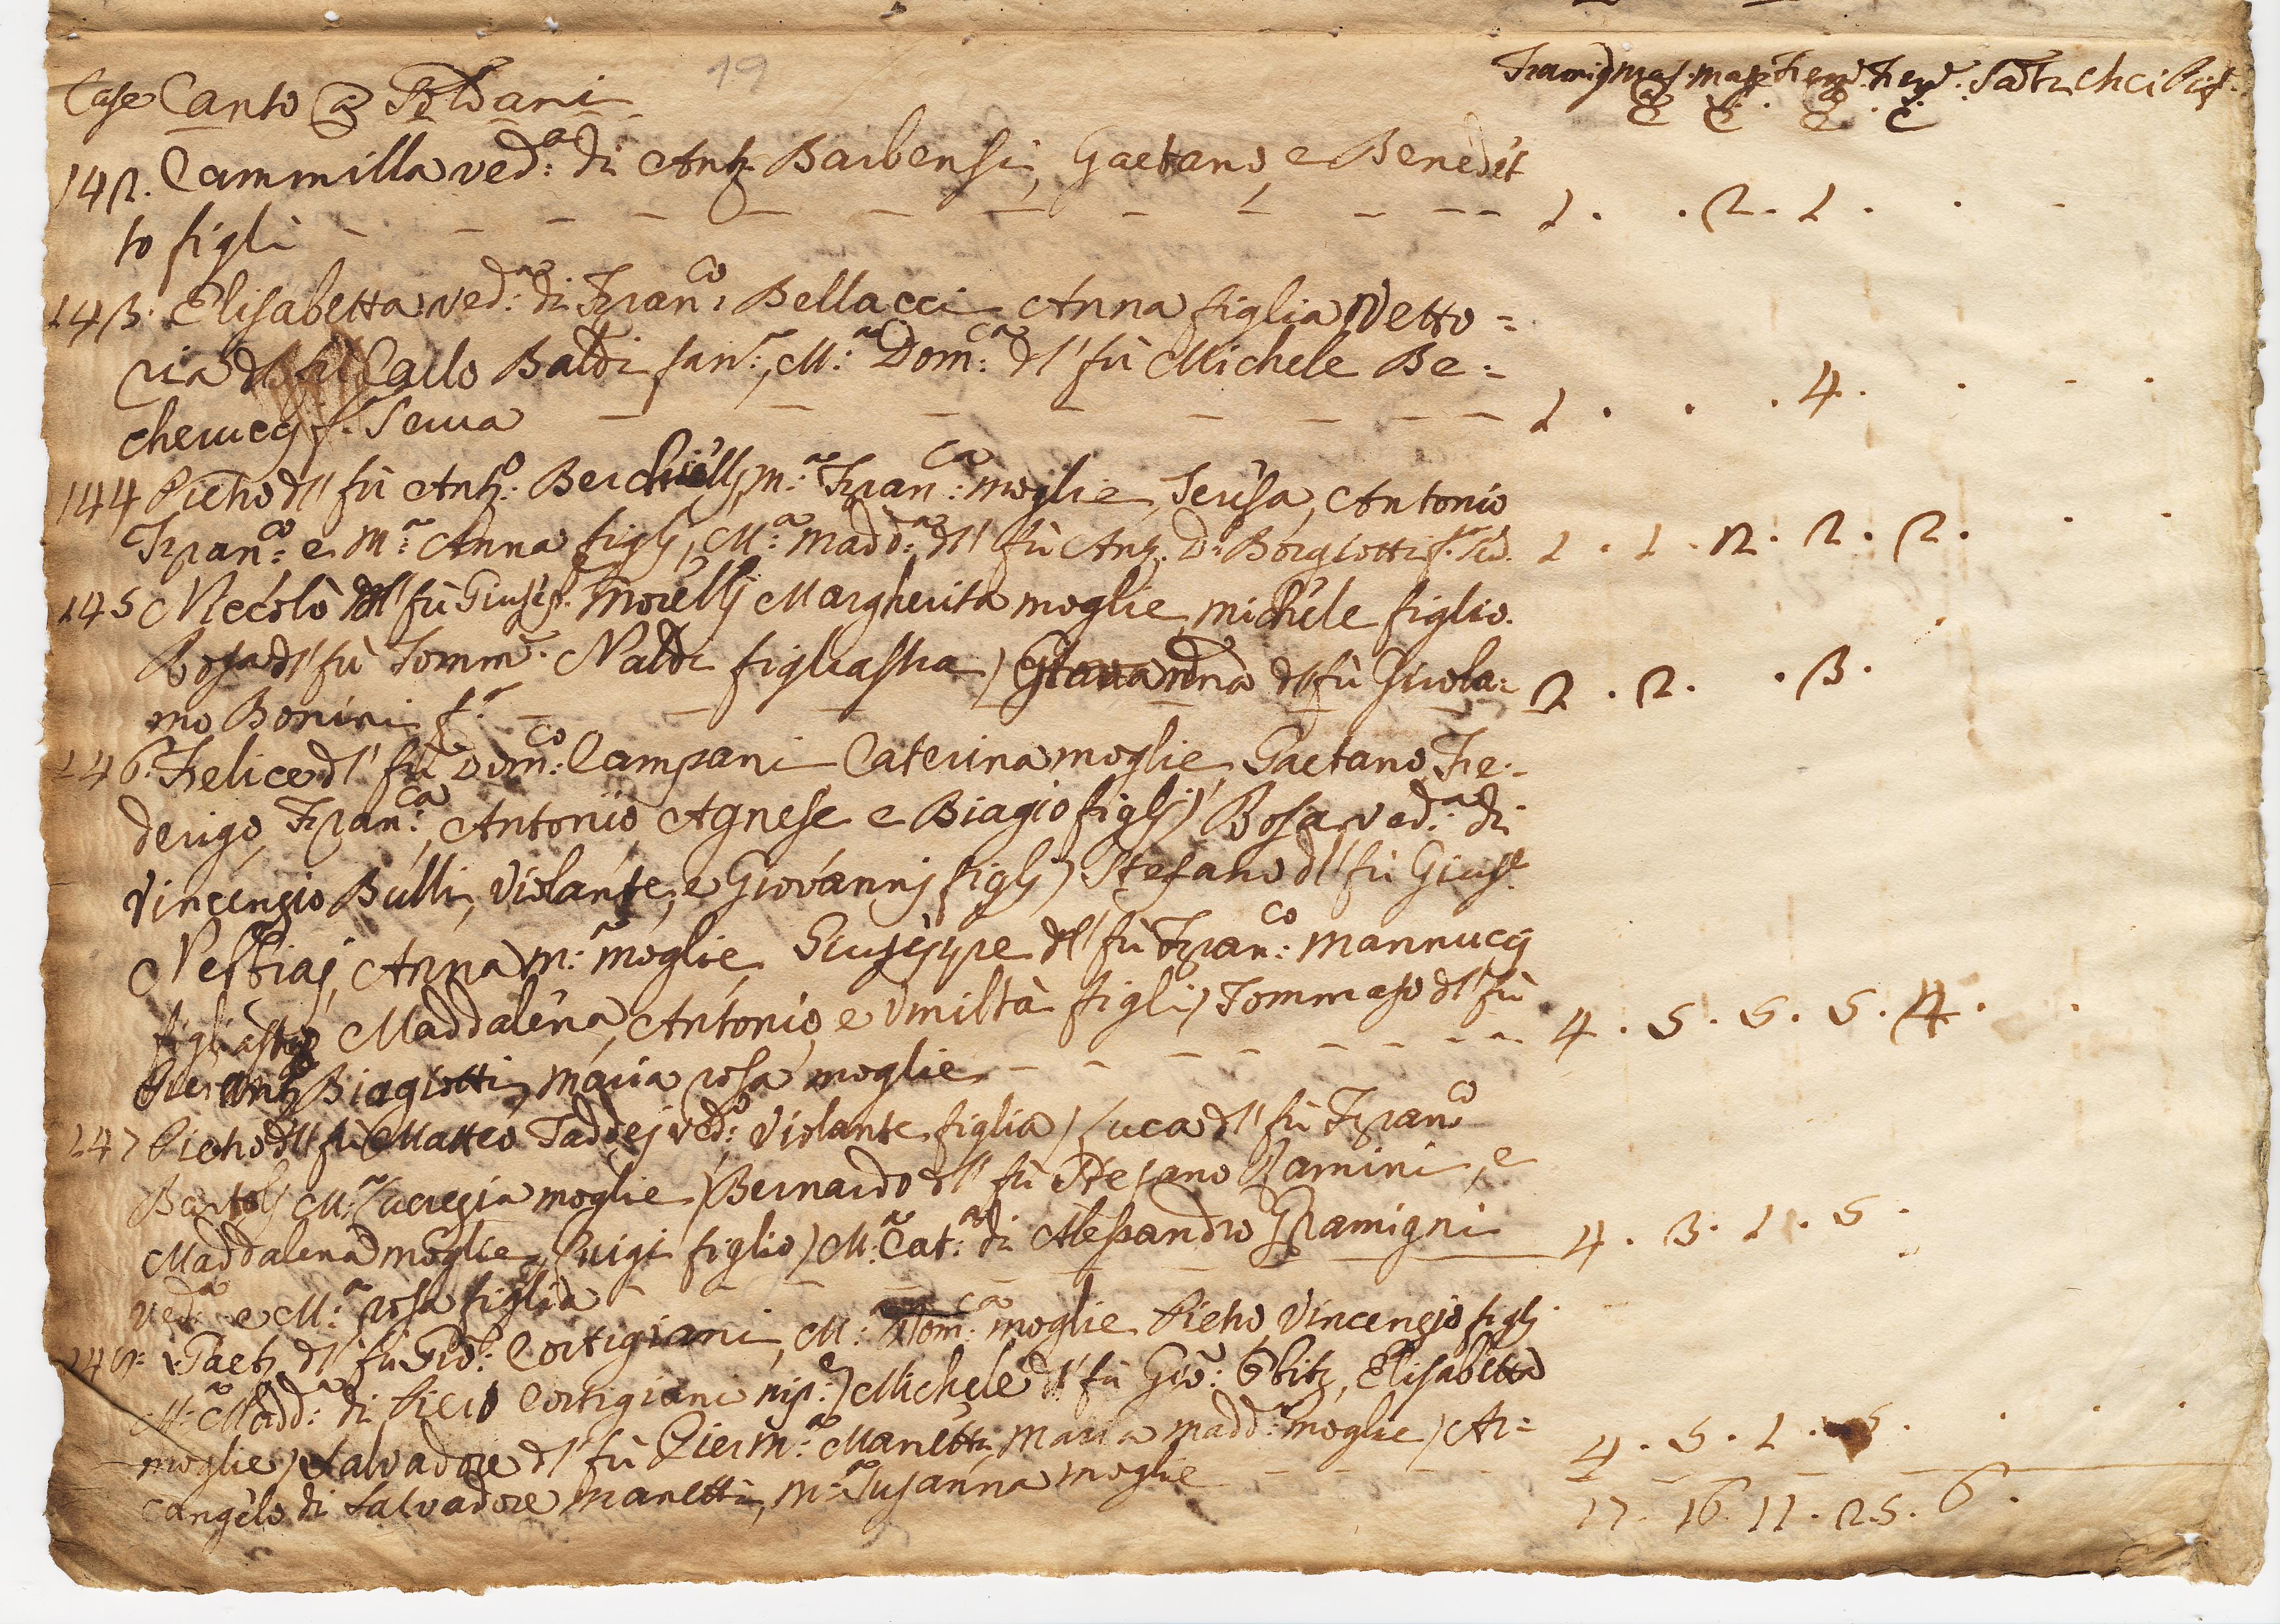 19
Case Canto a Soldani
Famig. mas. mas. fem. fem. Sac. Chci. Rig.
C. C. C. C.
142. Cammilla ved:a di Ant. Barbensi, Gaetano, e Benedet
to figli - - - - - - - - - - - 1 . . 2 . 1 . . .
143. Elisabetta ved:a di Fran:co Bellacci Anna figlia, Vetto=
ria dl fù Carlo Baldi fan:, M:a Dom:ca dl' fù Michele Be=
cheruccj f. Serva - - - - - - - - 1 . . . 4 . . . .
144 Pietro dl' fù Ant:o Berchiellj, M:a Fran:ca moglie, Teresa, Antonio
Fran:co e M:a Anna figlj, M:a Madd:a dl' fù Ant. D. Borgiotti f. 1 . 1 . 2 . 2 . 2 . . .
145 Niccolò dl' fù Giusep. Morellj Margherita moglie, Michele figlio.
Rosa dl' fù Tomm. Naldi figliastra) Giovanna dl fù Girola=
mo Bonini f. - - - - - - 2 . 2 . . 3 .
146. Felice dl' fù Dom:co Campani Caterina moglie, Gaetano, Fe=
derigo, Fran:ca, Antonio Agnese e Biagio figlj) Rosa ved:a di
Vincenzio Bulli, Violante, e Giovannj figlj) Stefano dl' fù Gius.
Nestiaj, Anna M:a moglie, Giuseppe dl' fù Fran:co Mannuccj
figliastro Maddalena, Antonio, e Umiltà figli) Tommaso dl' fù
Pier Ant Biagiotti, Maria rosa moglie - - - - - - - - 4 . 5 . 5 . 5 . 4 . .
147 Pietro dl' fù Matteo Taddej ved:o Violante figlia) Luca dl' fù Fran:co
Bartolj M:a Lucrezia moglie) Bernardo dl' fù Stefano Ramini, e
Maddalena moglie, Luigi figlio) M:a Cat:a di Alessandro Gramigni
ved:a e M:a rosa figlia - - - - - - 4 . 3 . 1 . 5 .
148: Gaet. dl' fù Gio: Cortigiani, M:a Dom:ca moglie Pietro, Vincenzio figlj
M:a Madd:a di Piero Cortigiani nip:e) Michele dl' fù Gio: , Elisabetta
moglie) Salvadore dl' fù Pier M:a Manetti, Maria Madd:a moglie) Ar=
cangelo di Salvadore Manetti, M:a Susanna moglie - - - - 4 . 5 . 1 . 5 . . . .
17 . 16 . 11 . 25 . 6 .